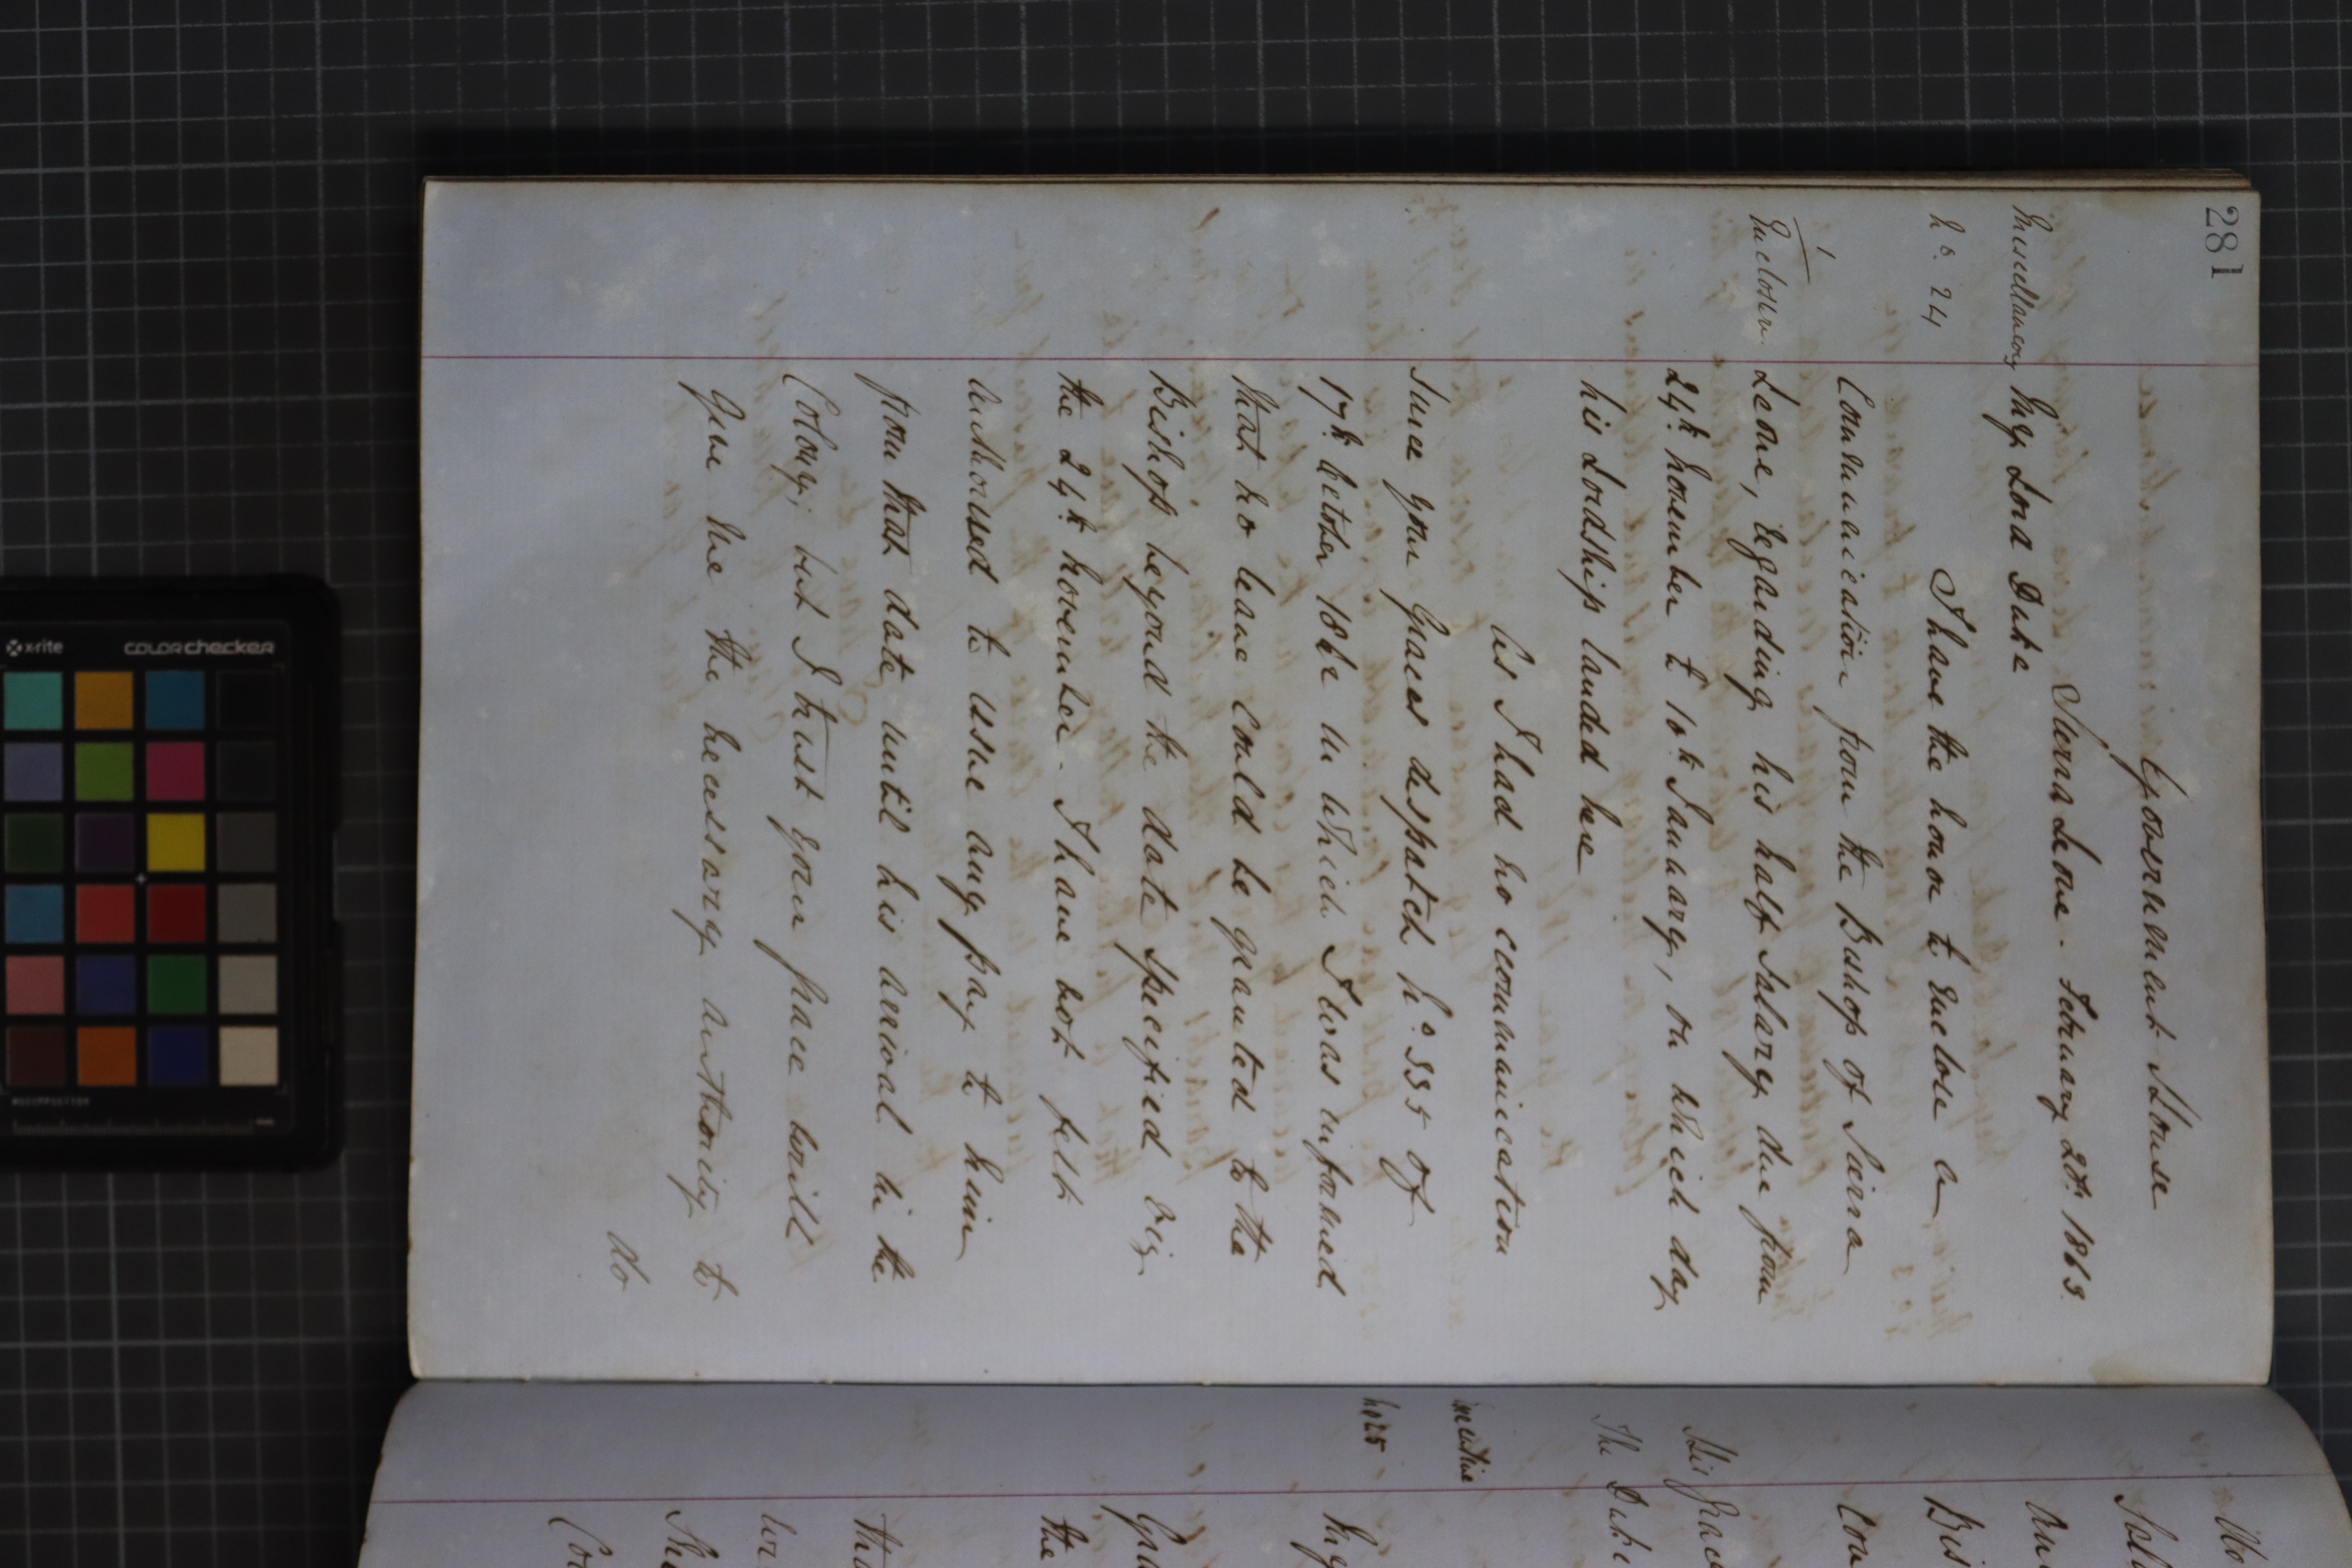 281
Government House
Sierra Leone. February 20th 1863.
Miscellaneous My Lord Duke
No. 24
I have the honor to enclose a
Communication from the Bishop of Sierra
1
Enclosure. Leone, regarding his half salary due from
24th November to 10th January, on which day
his Lordship landed here
As I had no communication
since your Graces despatch No 335 of
17th October 1862 in which I was informed
that no leave could be granted to the
Bishop beyond the date specified viz
the 24th November. I have not felt
authorised to issue any pay to him
from that date until his arrival in the
Colony; but I trust your Grace will
give me the necessary authority to
do
His Grace
The Duke
Executive
No 25
My
Gra
the
tha
Co
Bis
Con